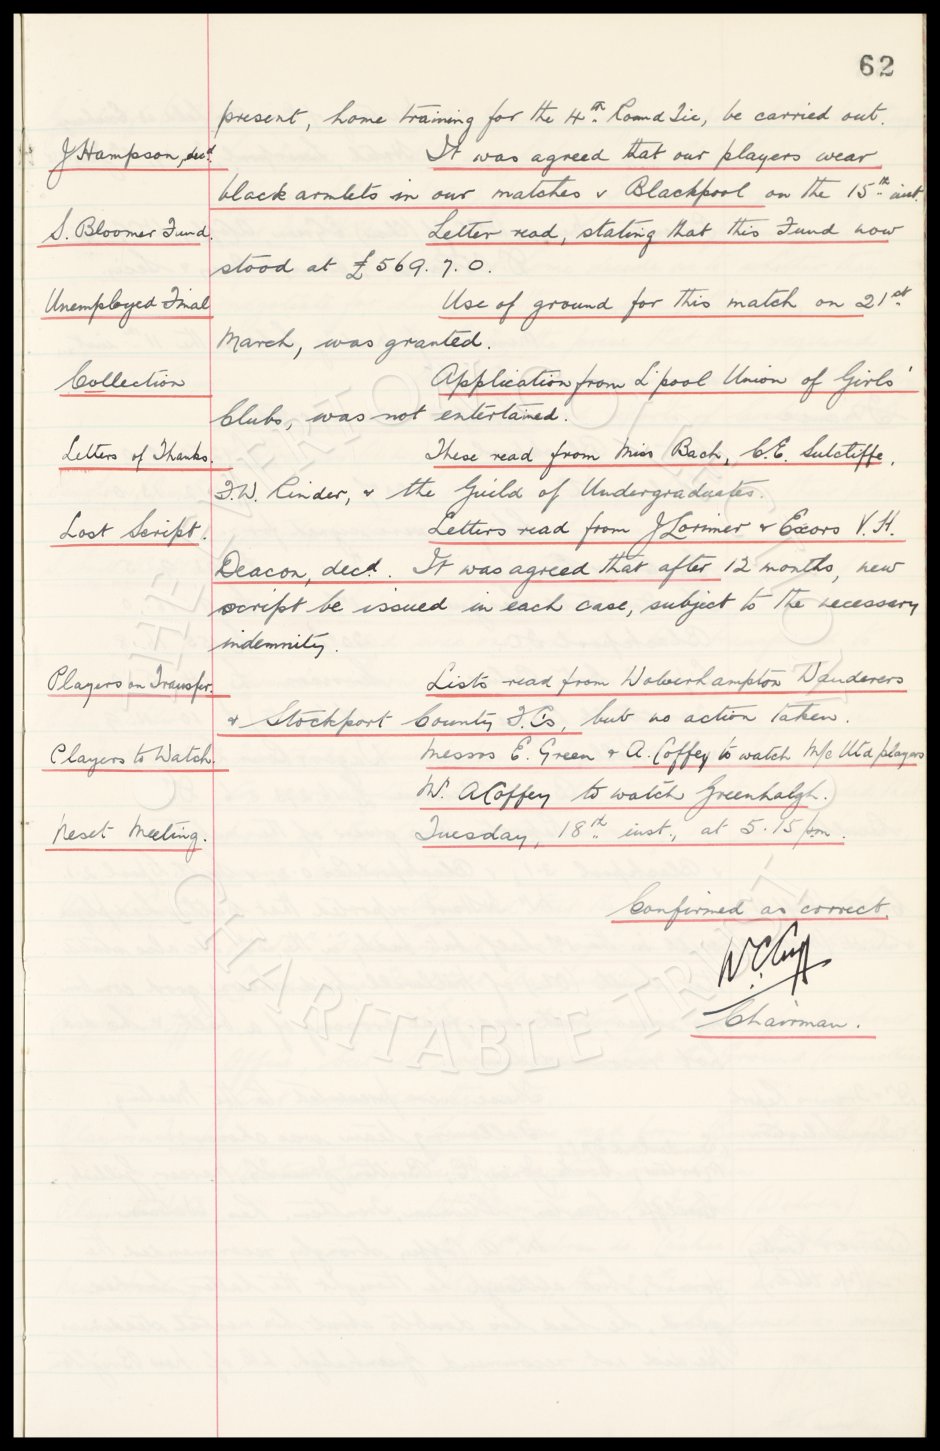 62
present, home training for the 4th Round Tie, be carried out.
J Hampson, decd. It was agreed that our players wear
black armlets in our matches v Blackpool on the 15th inst.
S. Bloomer Fund. Letter read, stating that this Fund now
stood at £569. 7. 0.
Unemployed Final Use of ground for this match on 21st
March, was granted.
Collection Application from L'pool Union of Girls'
Clubs, was not entertained.
Letters of Thanks. These read from Miss Bach, C.E. Sutcliffe,
T.W. Rinder, & the Guild of Undergraduates.
Lost Script. Letters read from J Lorimer & Exors V. H.
Deacon, decd. It was agreed that after 12 months, new
script be issued in each case, subject to the necessary
indemnity.
Players on Transfer. Lists read from Wolverhampton Wanderers
& Stockport County F.Cs, but no action taken.
Players to Watch. Messrs E. Green & A. Coffey to watch M/c Utd players
Mr. A Coffey to watch Greenhalgh.
Next Meeting. Tuesday, 18th inst., at 5.15 pm.
Confirmed as correct.
W.C. Cuff
Chairman.
THE EVERTON COLLECTION
CHARITABLE TRUST